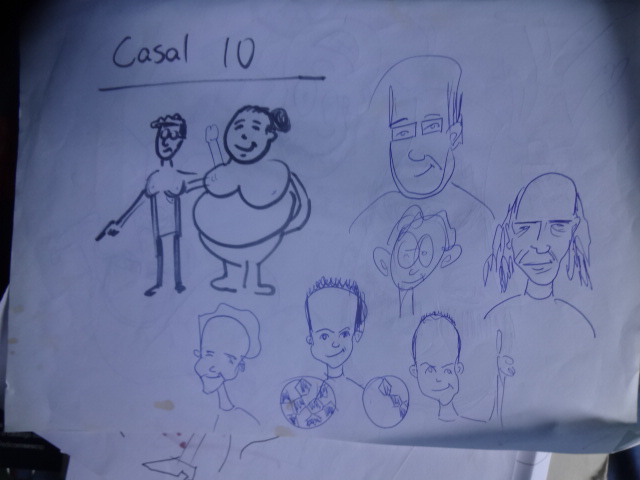 Casal 10